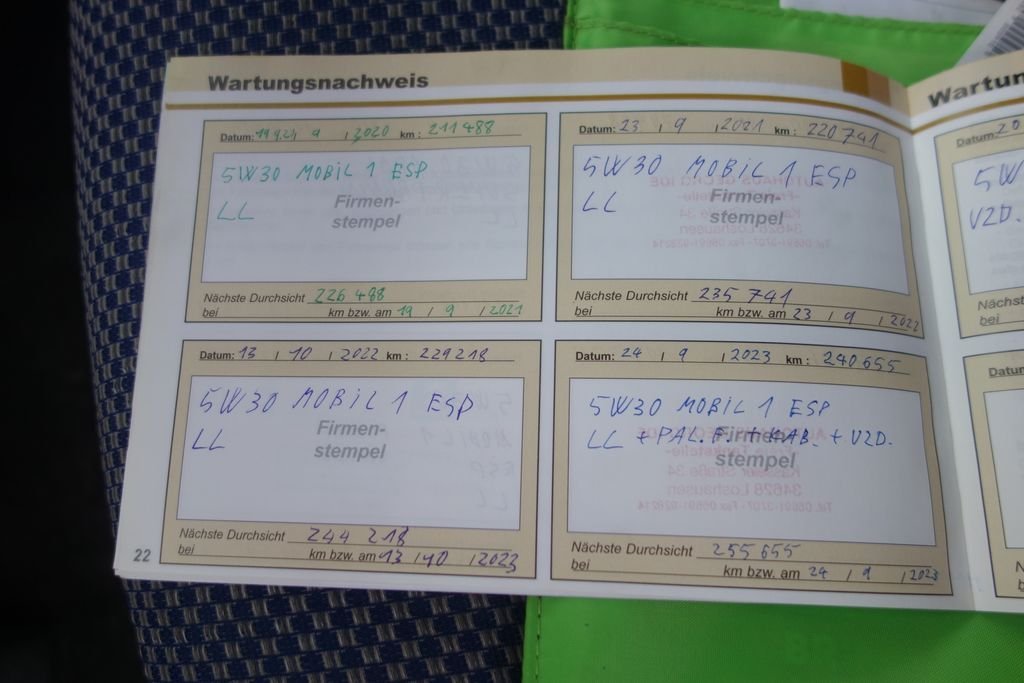 Wartungsnachweis
Datum: 19 9 2020 km: 211 488
5W30 MOBIL 1 ESP
LL
Firmen-
stempel
Nächste Durchsicht 226 488
bei km bzw. am 19 / 9 / 2021
Datum: 23 / 9 / 2021 km: 220 741
5W30 MOBIL 1 ESP
LL
Firmen-
stempel
Nächste Durchsicht 235 741
bei km bzw. am 23 / 9 / 2022
Datum: 13 / 10 / 2022 km: 229218
5W30 MOBIL 1 ESP
LL
Firmen-
stempel
Nächste Durchsicht 244 218
bei km bzw. am 13 / 10 / 2023
22
Datum: 24 / 9 / 2023 km: 240 655
5W30 MOBIL 1 ESP
LL + PAL. F. + KAB. + VZD.
Firmen-
stempel
Nächste Durchsicht 255 655
bei km bzw. am 24 / 9 / 2023
Wartun
Datum: 20
5W
VZD.
Nächst
bei
Datun
N
be